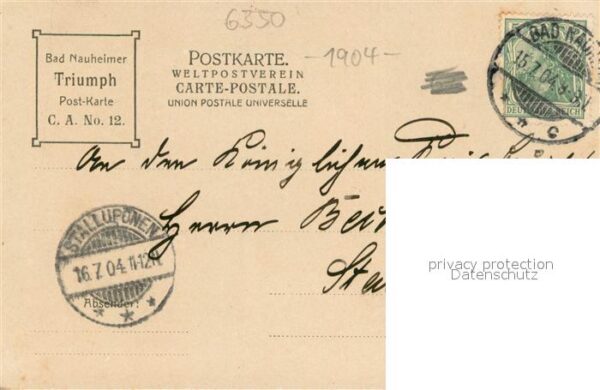 6350
-1904-
Bad Nauheimer
Triumph
Post-Karte
C. A. No. 12.
POSTKARTE.
WELTPOSTVEREIN
CARTE-POSTALE.
UNION POSTALE UNIVERSELLE
BAD NAUHEIM
15.7.04
DEUTSCHES REICH
An den Königlichen
Herrn
STALLUPÖNEN
16.7.04.11-12V.
Absender:
privacy protection
Datenschutz